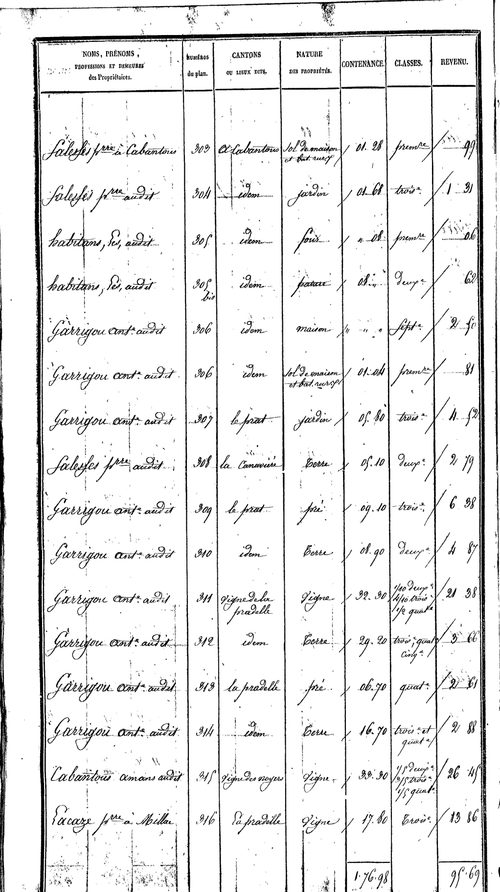 NOMS, PRÉNOMS, PROFESSIONS ET DEMEURES des Propriétaires. NUMÉROS du plan. CANTONS OU LIEUX DITS. NATURE DES PROPRIÉTÉS. CONTENANCE. CLASSES. REVENU.
Salesses prre à Cabantous 303 à Cabantous Sol de maison et bat. rural / 01.28 premre / 99
Salesses prre audit 304 idem jardin / 01.68 trois. / 1 31
habitans, les, audit 305 idem four / " 08 premre / 06
habitans, les, audit 305 bis idem patus / 08 " deux. / 62
Garrigou ant. audit 306 idem maison / " " " Sept. / 2 50
Garrigou ant. audit 306 idem Sol de maison et bat. rural / 01.04 premre / 81
Garrigou ant. audit 307 le prat jardin / 05.80 trois. / 4 52
Salesses prre audit 308 la Canavière Terre / 05.10 deux. / 2 79
Garrigou ant. audit 309 le prat pré / 09.10 trois. / 6 38
Garrigou ant. audit 310 idem Terre / 08.90 deux. / 4 87
Garrigou ant. audit 311 Vigne de la pradelle Vigne / 32.30 1/10 deux. 4/10 trois. 1/2 quat. / 21 38
Garrigou ant. audit 312 idem Terre / 29.20 trois, quat. cinq. / 3 66
Garrigou ant. audit 313 la pradelle pré / 06.70 quat. / 2 61
Garrigou ant. audit 314 idem Terre / 16.70 trois. et quat. / 2 88
Cabantous amans audit 315 Vigne des noyers Vigne / 33.30 1/5 deux. 3/5 trois. 1/5 quat. / 26 45
Lacaze prre à Millau 316 La pradelle Vigne / 17.80 Trois. / 13 86
1.76.98 95.69